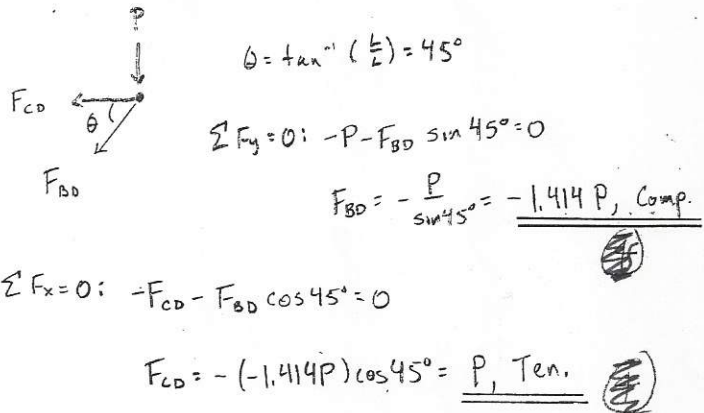 P
θ = tan⁻¹ (L/L) = 45°
F_CD
θ
F_BD
ΣFy = 0: -P - F_BD sin 45° = 0
F_BD = - P/sin45° = -1.414 P, Comp.
ΣFx = 0: -F_CD - F_BD cos 45° = 0
F_CD = - (-1.414P) cos 45° = P, Ten.